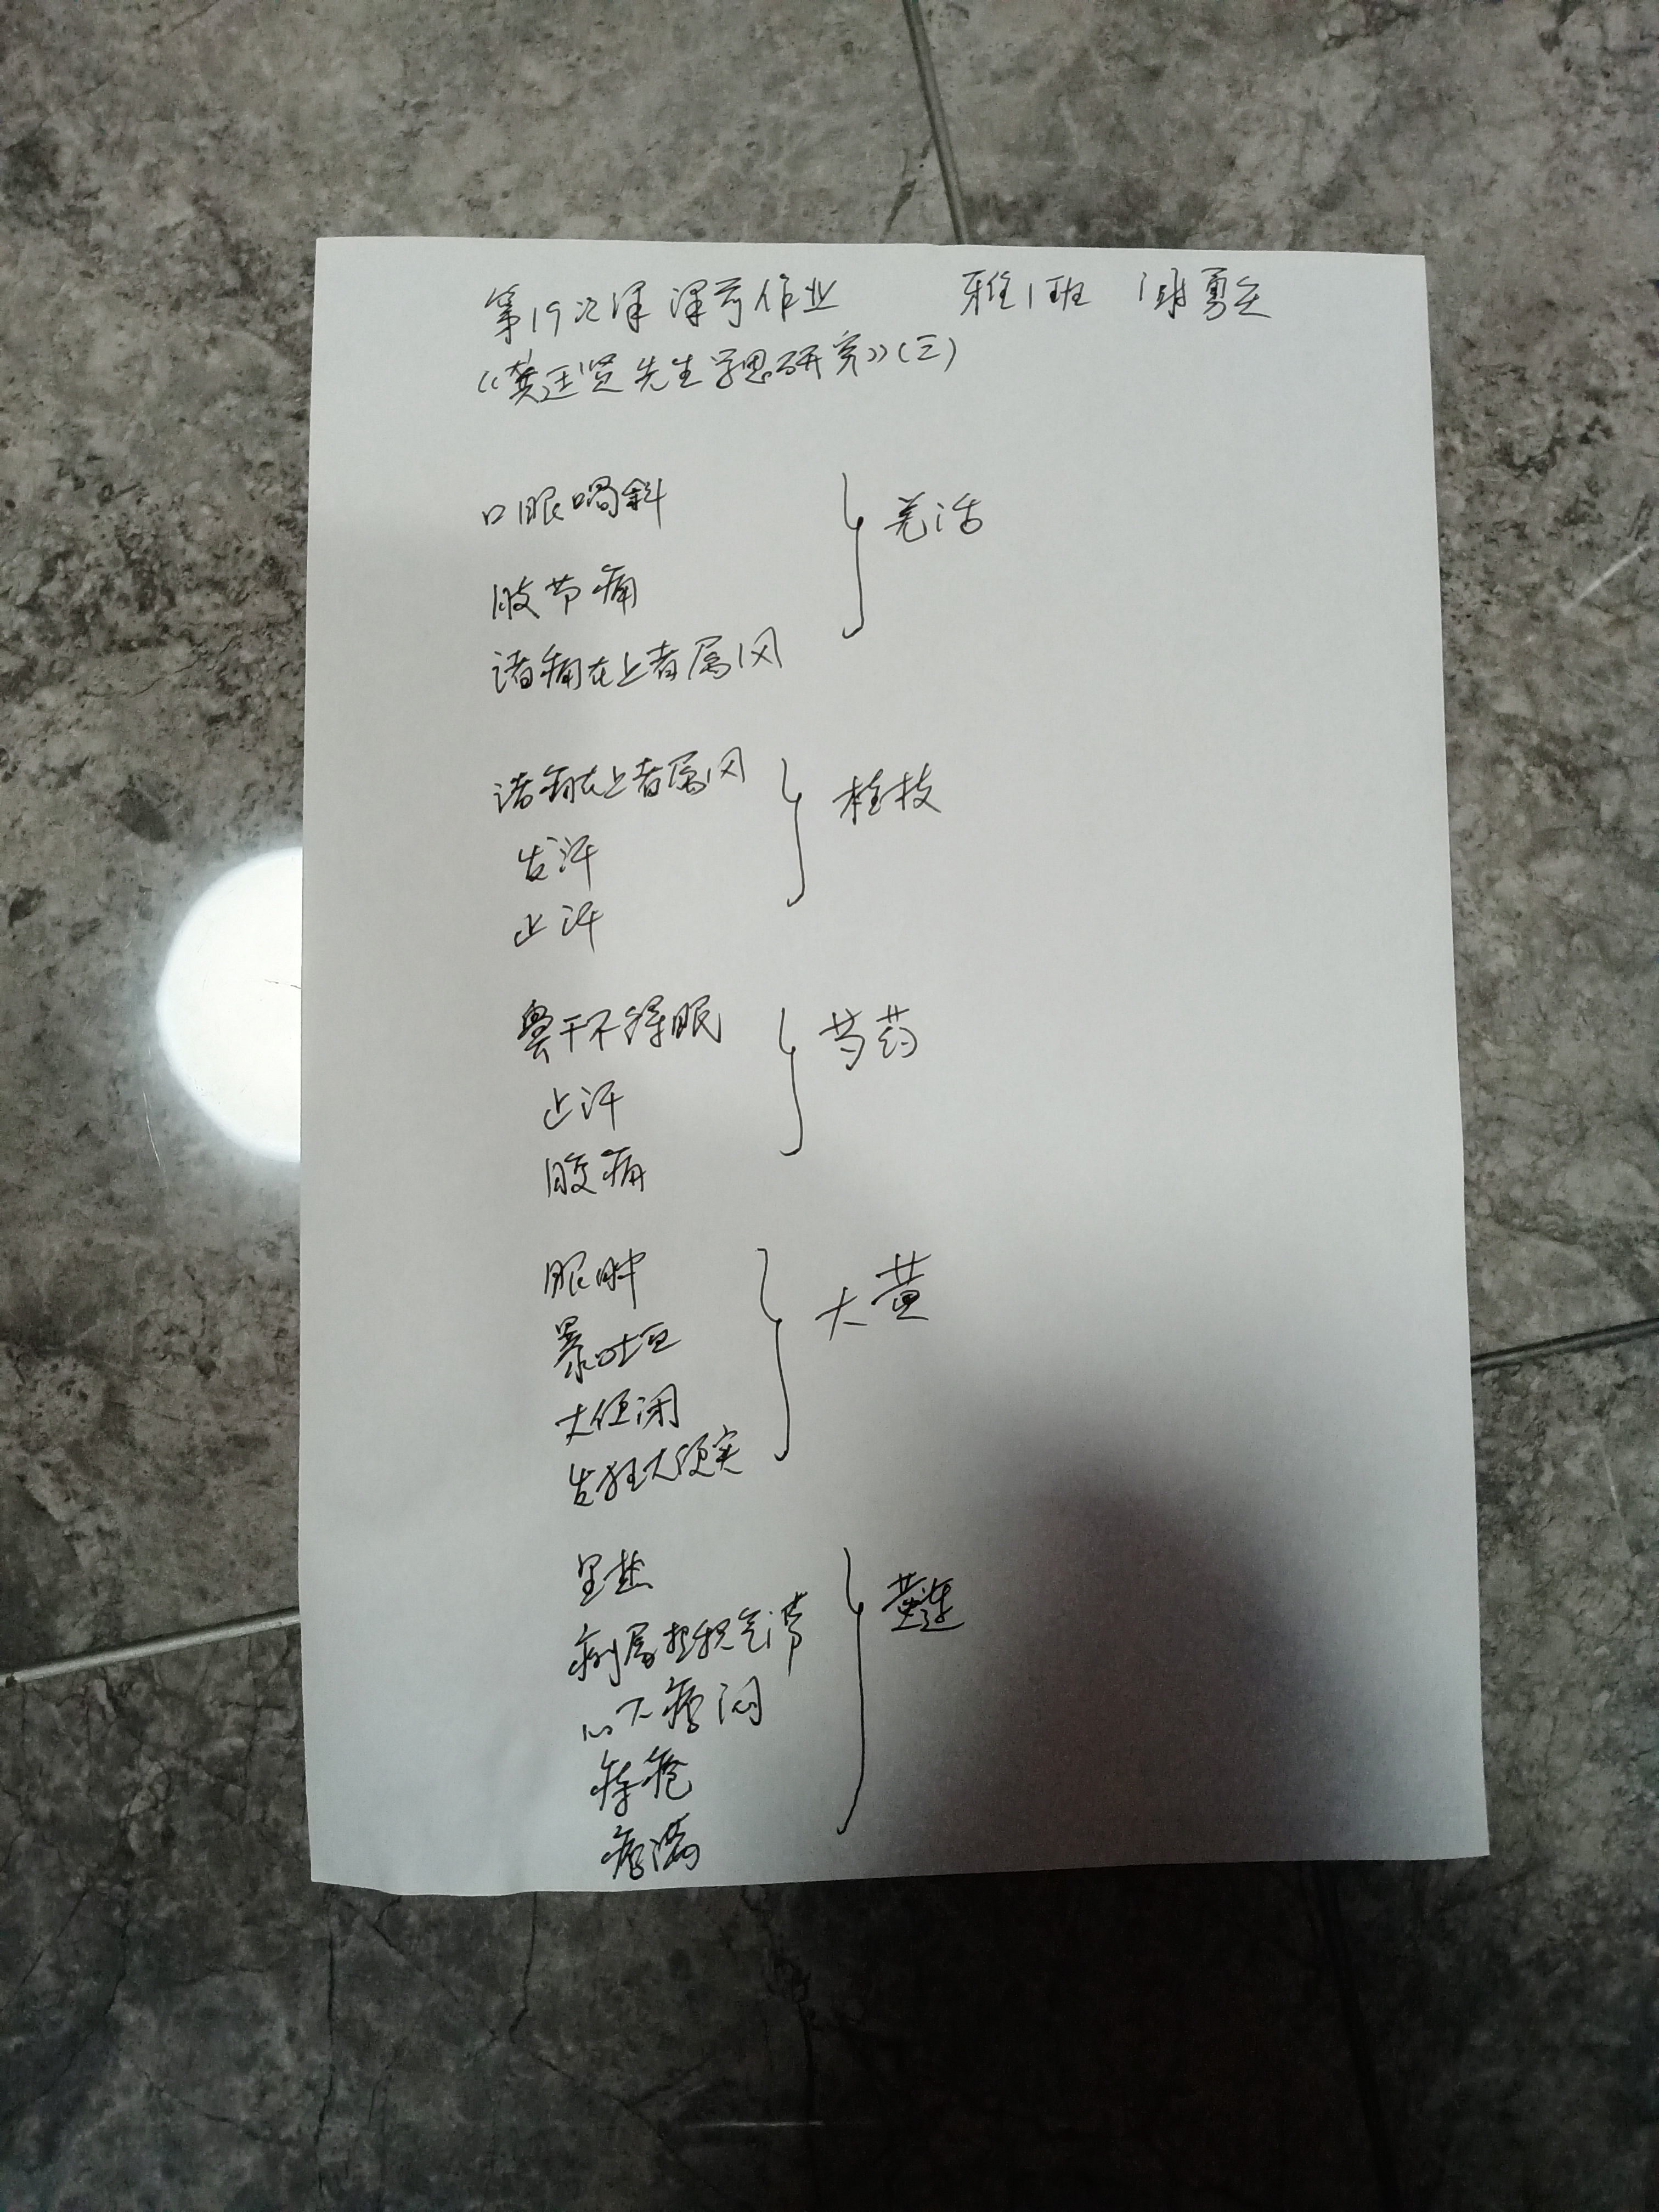 第19次课 课前作业 雅1班 谢勇
《龚廷贤先生学思研究》(三)
口眼喎斜
肢节痛
诸痛在上者属风
羌活
诸痛在上者属风
发汗
止汗
桂枝
鼻干不得眠
止汗
腹痛
芍药
眼肿
暴吐
大便闭
发狂大便实
大黄
里热
痢属热积气滞
心下痞闷
痔疮
痞满
黄连